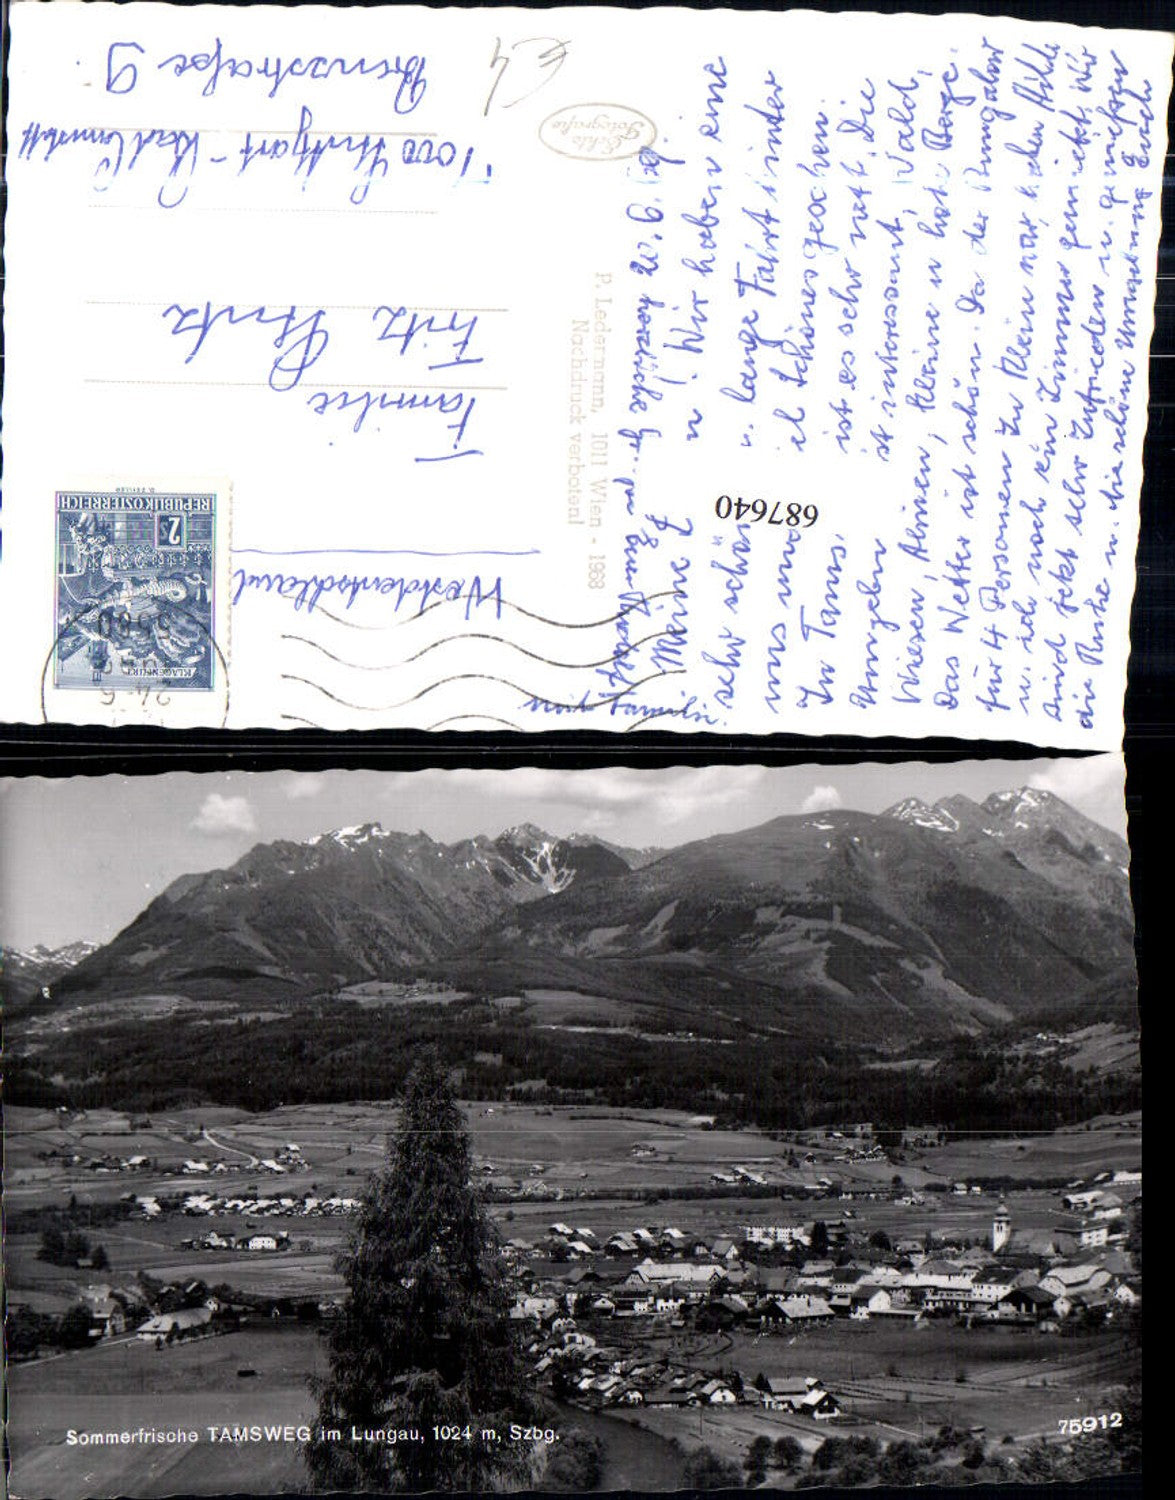 Meine L
n! Wir haben eine
sehr schön
u. lange Fahrt hinter
uns und
el Schönes gesehen.
In Tams.
ist es sehr nett. Die
Umgebun
ist interessant, Wald,
Wiesen, Almen, kleine u hohe Berge.
Das Wetter ist schön. Da der Bungalow
für 4 Personen zu klein war, haben Hilde
u. ich noch ein Zimmer gemietet. Wir
sind jetzt sehr zufrieden u. genießen
die Ruhe u. die schöne Umgebung. Euch
herzliche Gr.
687640
P. Ledermann, 1011 Wien - 1968
Nachdruck verboten!
Echte
Fotografie
€4
REPUBLIK ÖSTERREICH
2 S
KLAGENFURT
5580
24.-6
Familie
Fritz
7000 Stuttgart - Bad Cannstatt
Brenzstraße 9
Westdeutschland
Sommerfrische TAMSWEG im Lungau, 1024 m, Szbg.
75912